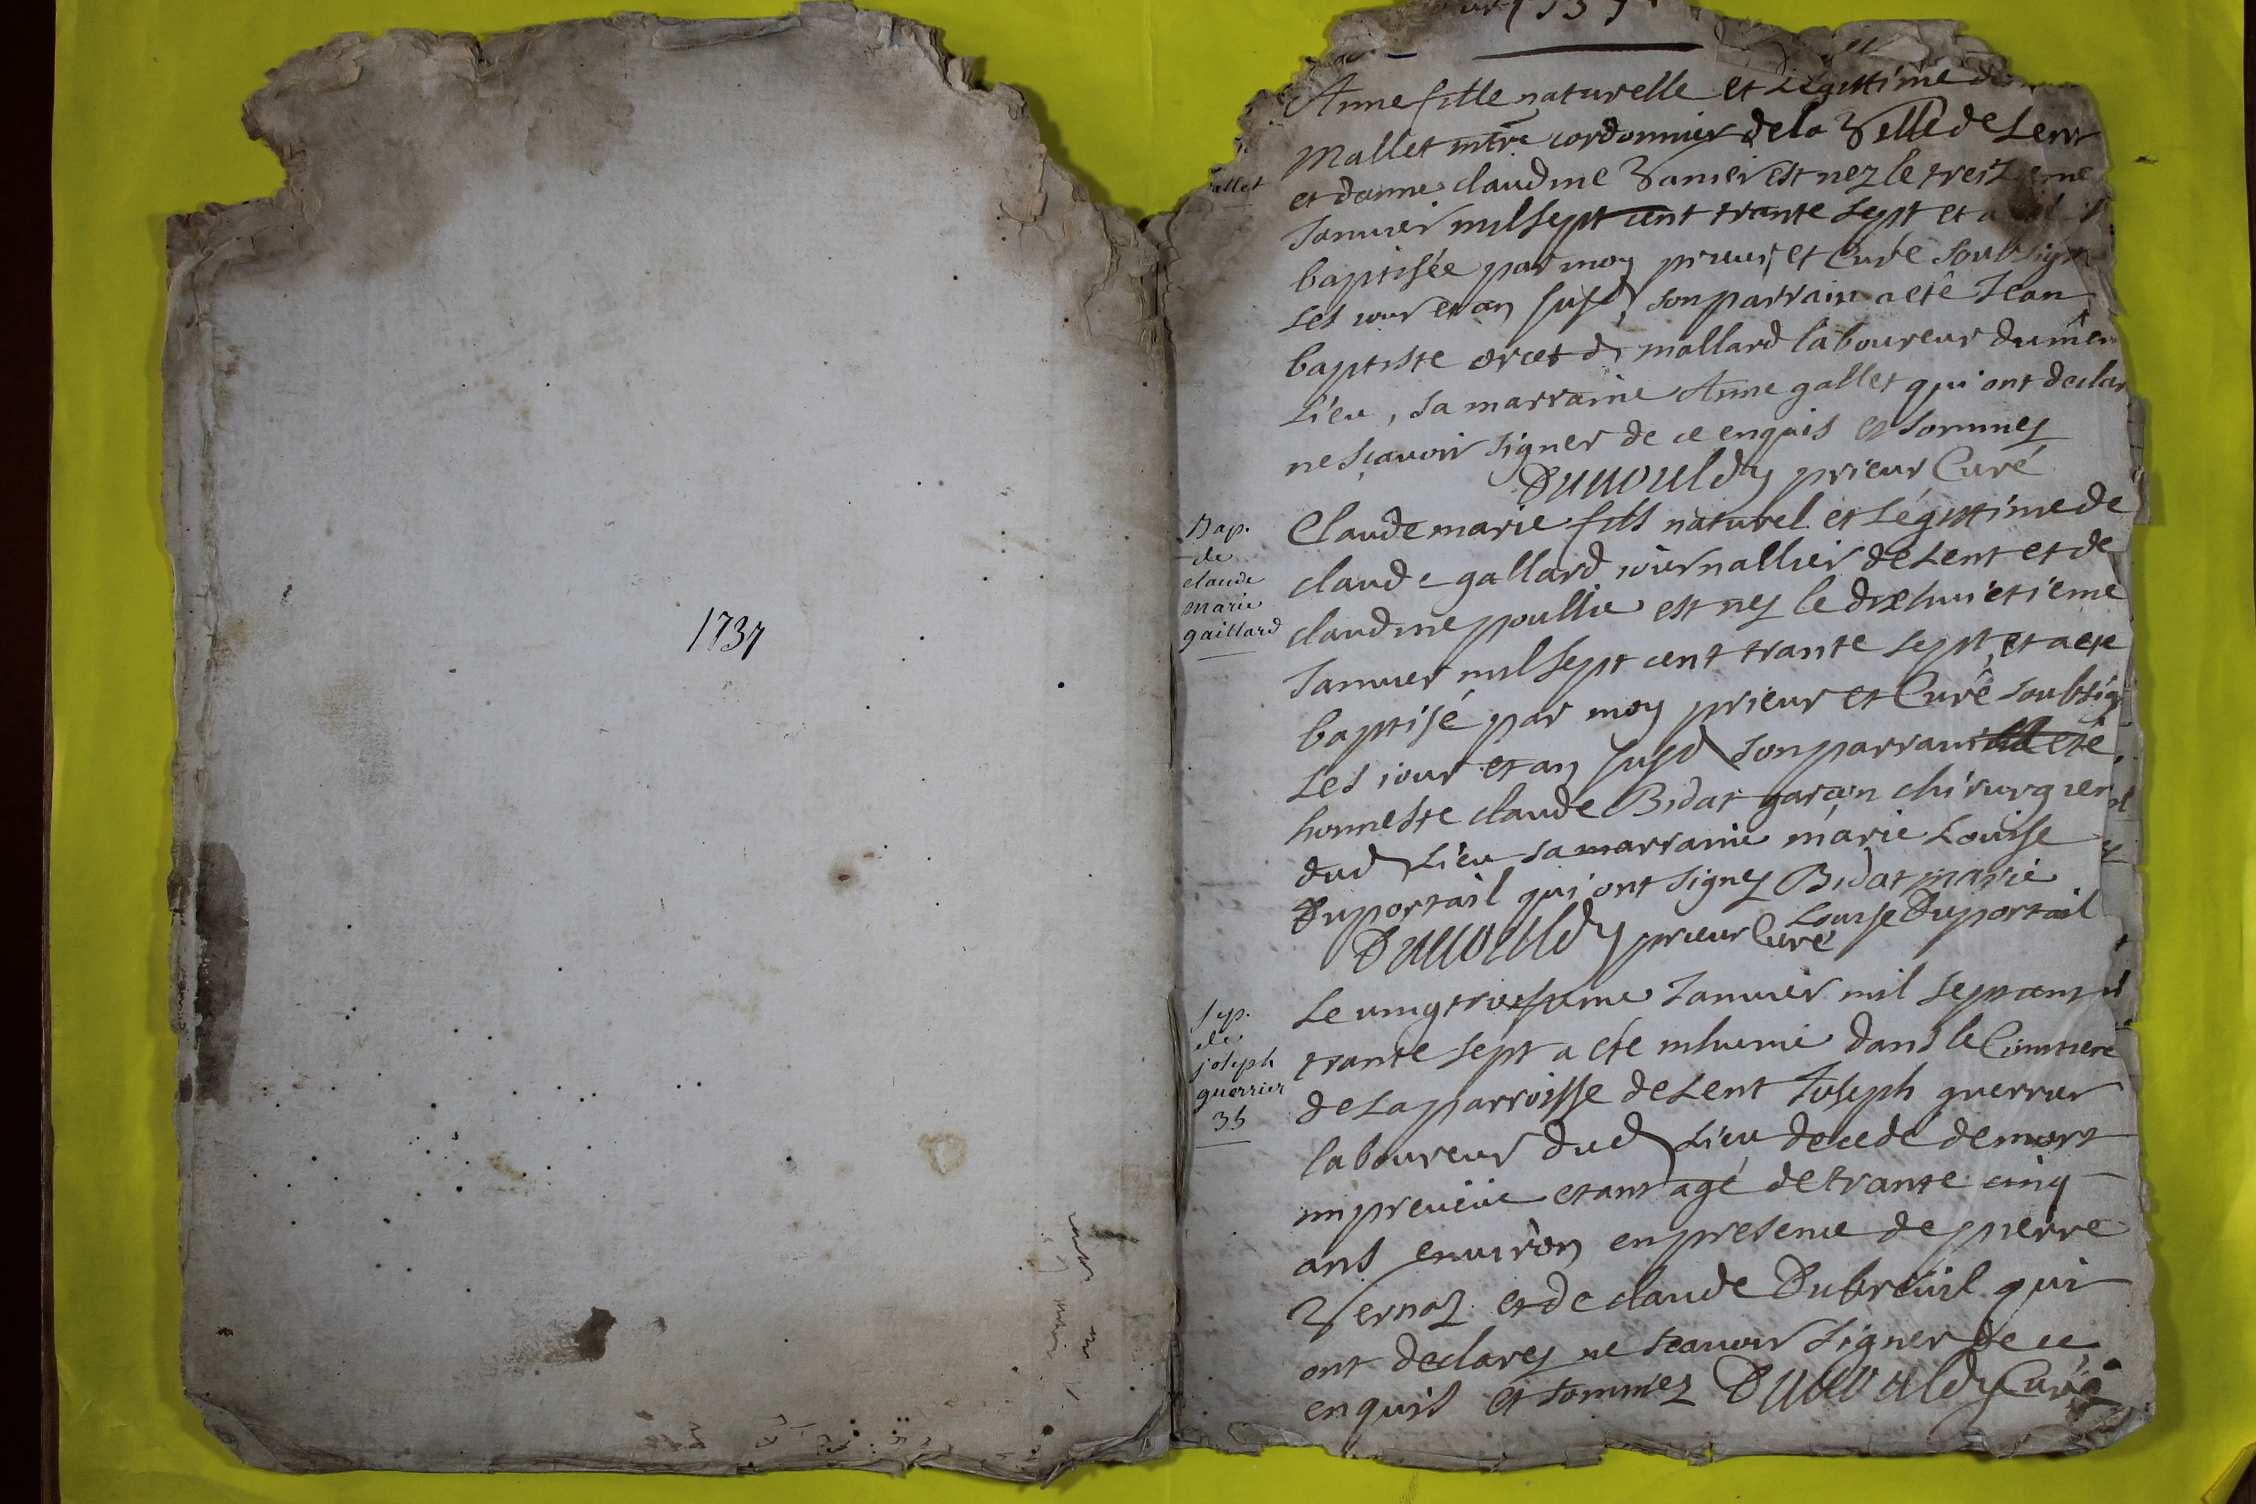 1737
1737
Anne fille naturelle et Legittime de
Mallet mtre cordonnier de la Ville de Lent
et de claudine Vanier est nez le treizieme
allet
Janvier mil sept cent trante sept et a
baptisée par moy prieur et Curé soubsign
Les jour et an susd son parrain a eté Jean
baptiste orcet d mallard laboureur du mem
Lieu, sa marraine Anne gallet qui ont declar
ne sçavoir signer de ce enquis et sommez
prieur Curé
Bap.
de
claude
marie
gaillard
Claude marie fils naturel et Légittime de
claude gallard journallier de Lent et de
claudine poullie est nez le dixhuictieme
Janvier mil sept cent trante sept, et a eté
baptisé par moy prieur et Curé soubsig
Les jour et an susd son parrain a eté
honneste claude Bidat garçon chirurgien
dud Lieu sa marraine marie Louisse
Duportail qui ont signez Bidat marie
Louise Duportail
prieur Curé
Sep.
de
joseph
guerrier
35
Le vingtroisieme Janvier mil sept cent
trante sept a eté inhumé dans le Cimitiere
de La parroisse de Lent Joseph guerrier
laboureur dud Lieu decedé de mort
impreveüe etant agé de trante cinq
ans environ en presence de pierre
Vernoz et de claude Dubreüil qui
ont declarez ne scavoir signer de ce
enquis et sommez Curé